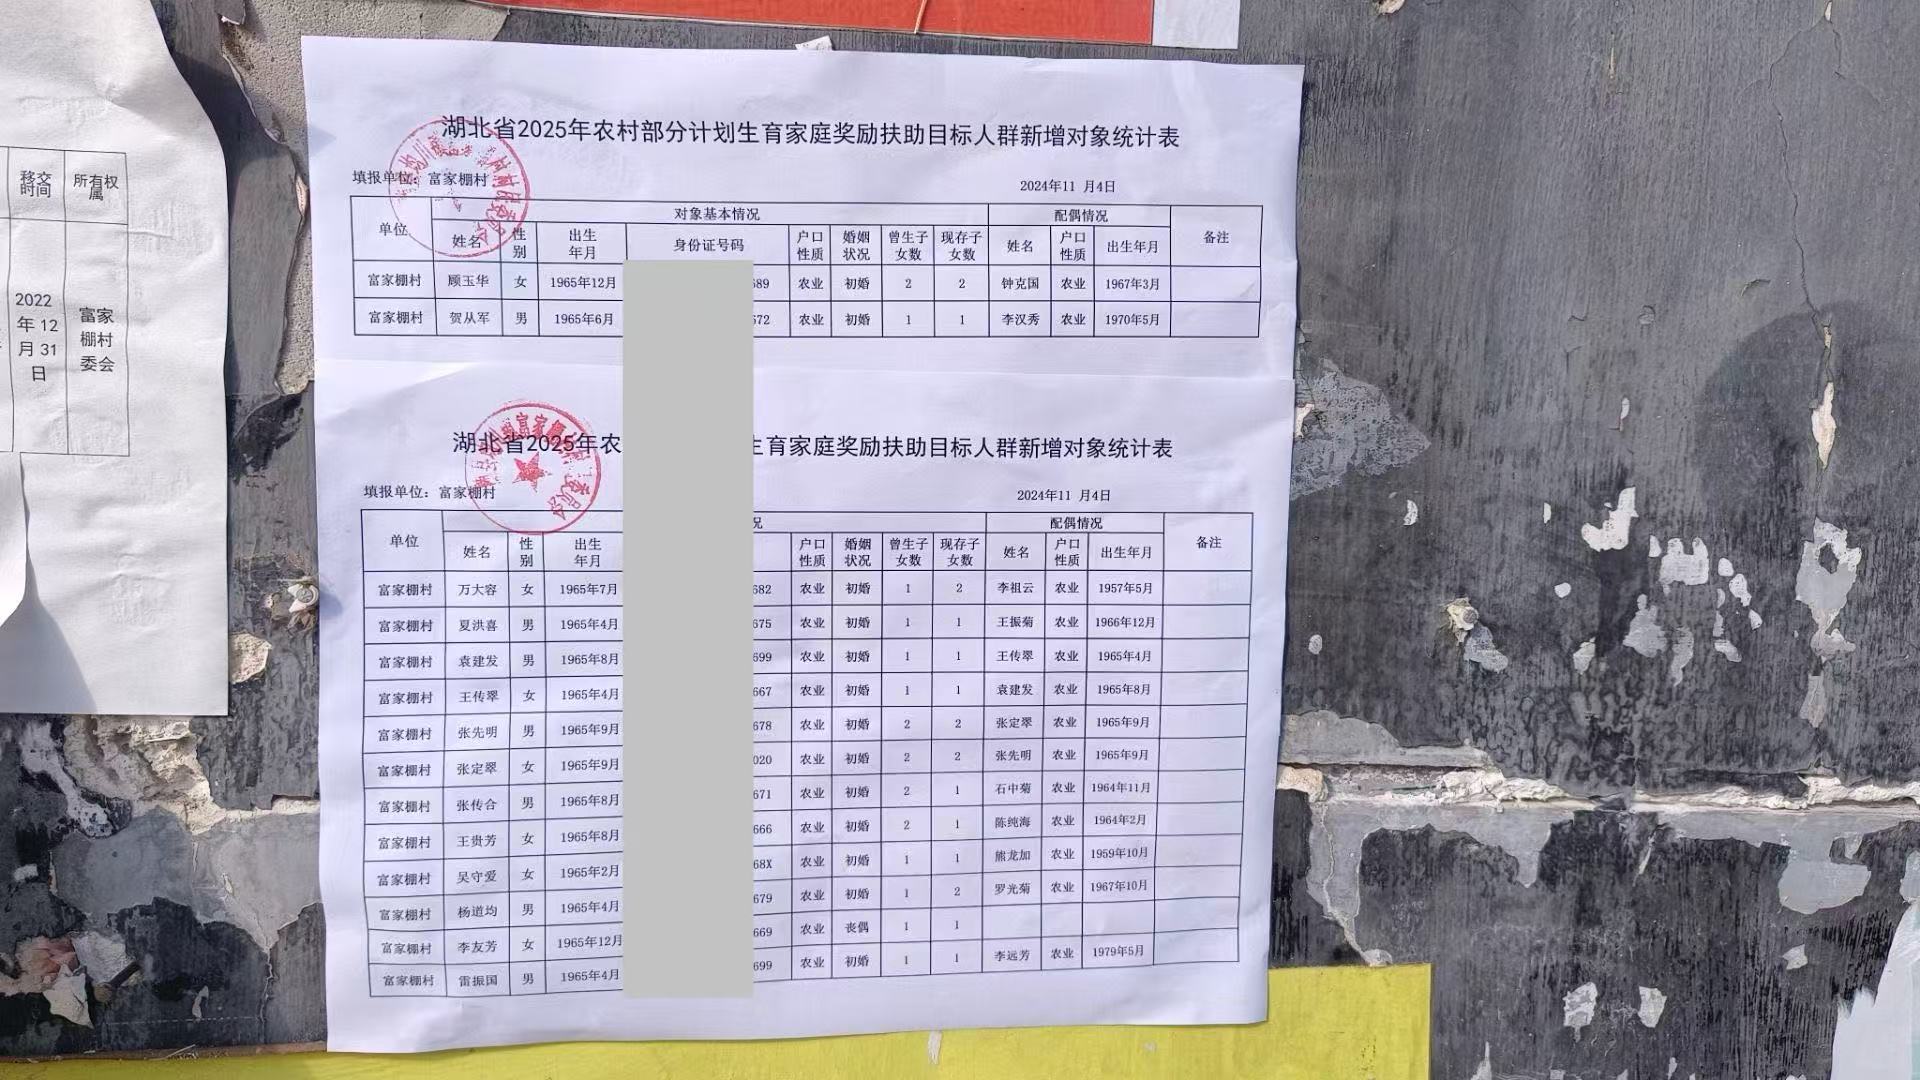 移交时间 所有权属
2022年12月31日 富家棚村委会
湖北省2025年农村部分计划生育家庭奖励扶助目标人群新增对象统计表
填报单位：富家棚村 2024年11 月4日
单位 对象基本情况 配偶情况 备注
姓名 性别 出生年月 身份证号码 户口性质 婚姻状况 曾生子女数 现存子女数 姓名 户口性质 出生年月
富家棚村 顾玉华 女 1965年12月 689 农业 初婚 2 2 钟克国 农业 1967年3月
富家棚村 贺从军 男 1965年6月 672 农业 初婚 1 1 李汉秀 农业 1970年5月
湖北省2025年农 生育家庭奖励扶助目标人群新增对象统计表
填报单位：富家棚村 2024年11 月4日
单位 况 配偶情况 备注
姓名 性别 出生年月 户口性质 婚姻状况 曾生子女数 现存子女数 姓名 户口性质 出生年月
富家棚村 万大容 女 1965年7月 682 农业 初婚 1 2 李祖云 农业 1957年5月
富家棚村 夏洪喜 男 1965年4月 675 农业 初婚 1 1 王振菊 农业 1966年12月
富家棚村 袁建发 男 1965年8月 699 农业 初婚 1 1 王传翠 农业 1965年4月
富家棚村 王传翠 女 1965年4月 667 农业 初婚 1 1 袁建发 农业 1965年8月
富家棚村 张先明 男 1965年9月 678 农业 初婚 2 2 张定翠 农业 1965年9月
富家棚村 张定翠 女 1965年9月 020 农业 初婚 2 2 张先明 农业 1965年9月
富家棚村 张传合 男 1965年8月 671 农业 初婚 2 1 石中菊 农业 1964年11月
富家棚村 王贵芳 女 1965年8月 666 农业 初婚 2 1 陈纯海 农业 1964年2月
富家棚村 吴守爱 女 1965年2月 68X 农业 初婚 1 1 熊龙加 农业 1959年10月
富家棚村 杨道均 男 1965年4月 679 农业 初婚 1 2 罗光菊 农业 1967年10月
富家棚村 李友芳 女 1965年12月 669 农业 丧偶 1 1
富家棚村 雷振国 男 1965年4月 699 农业 初婚 1 1 李远芳 农业 1979年5月